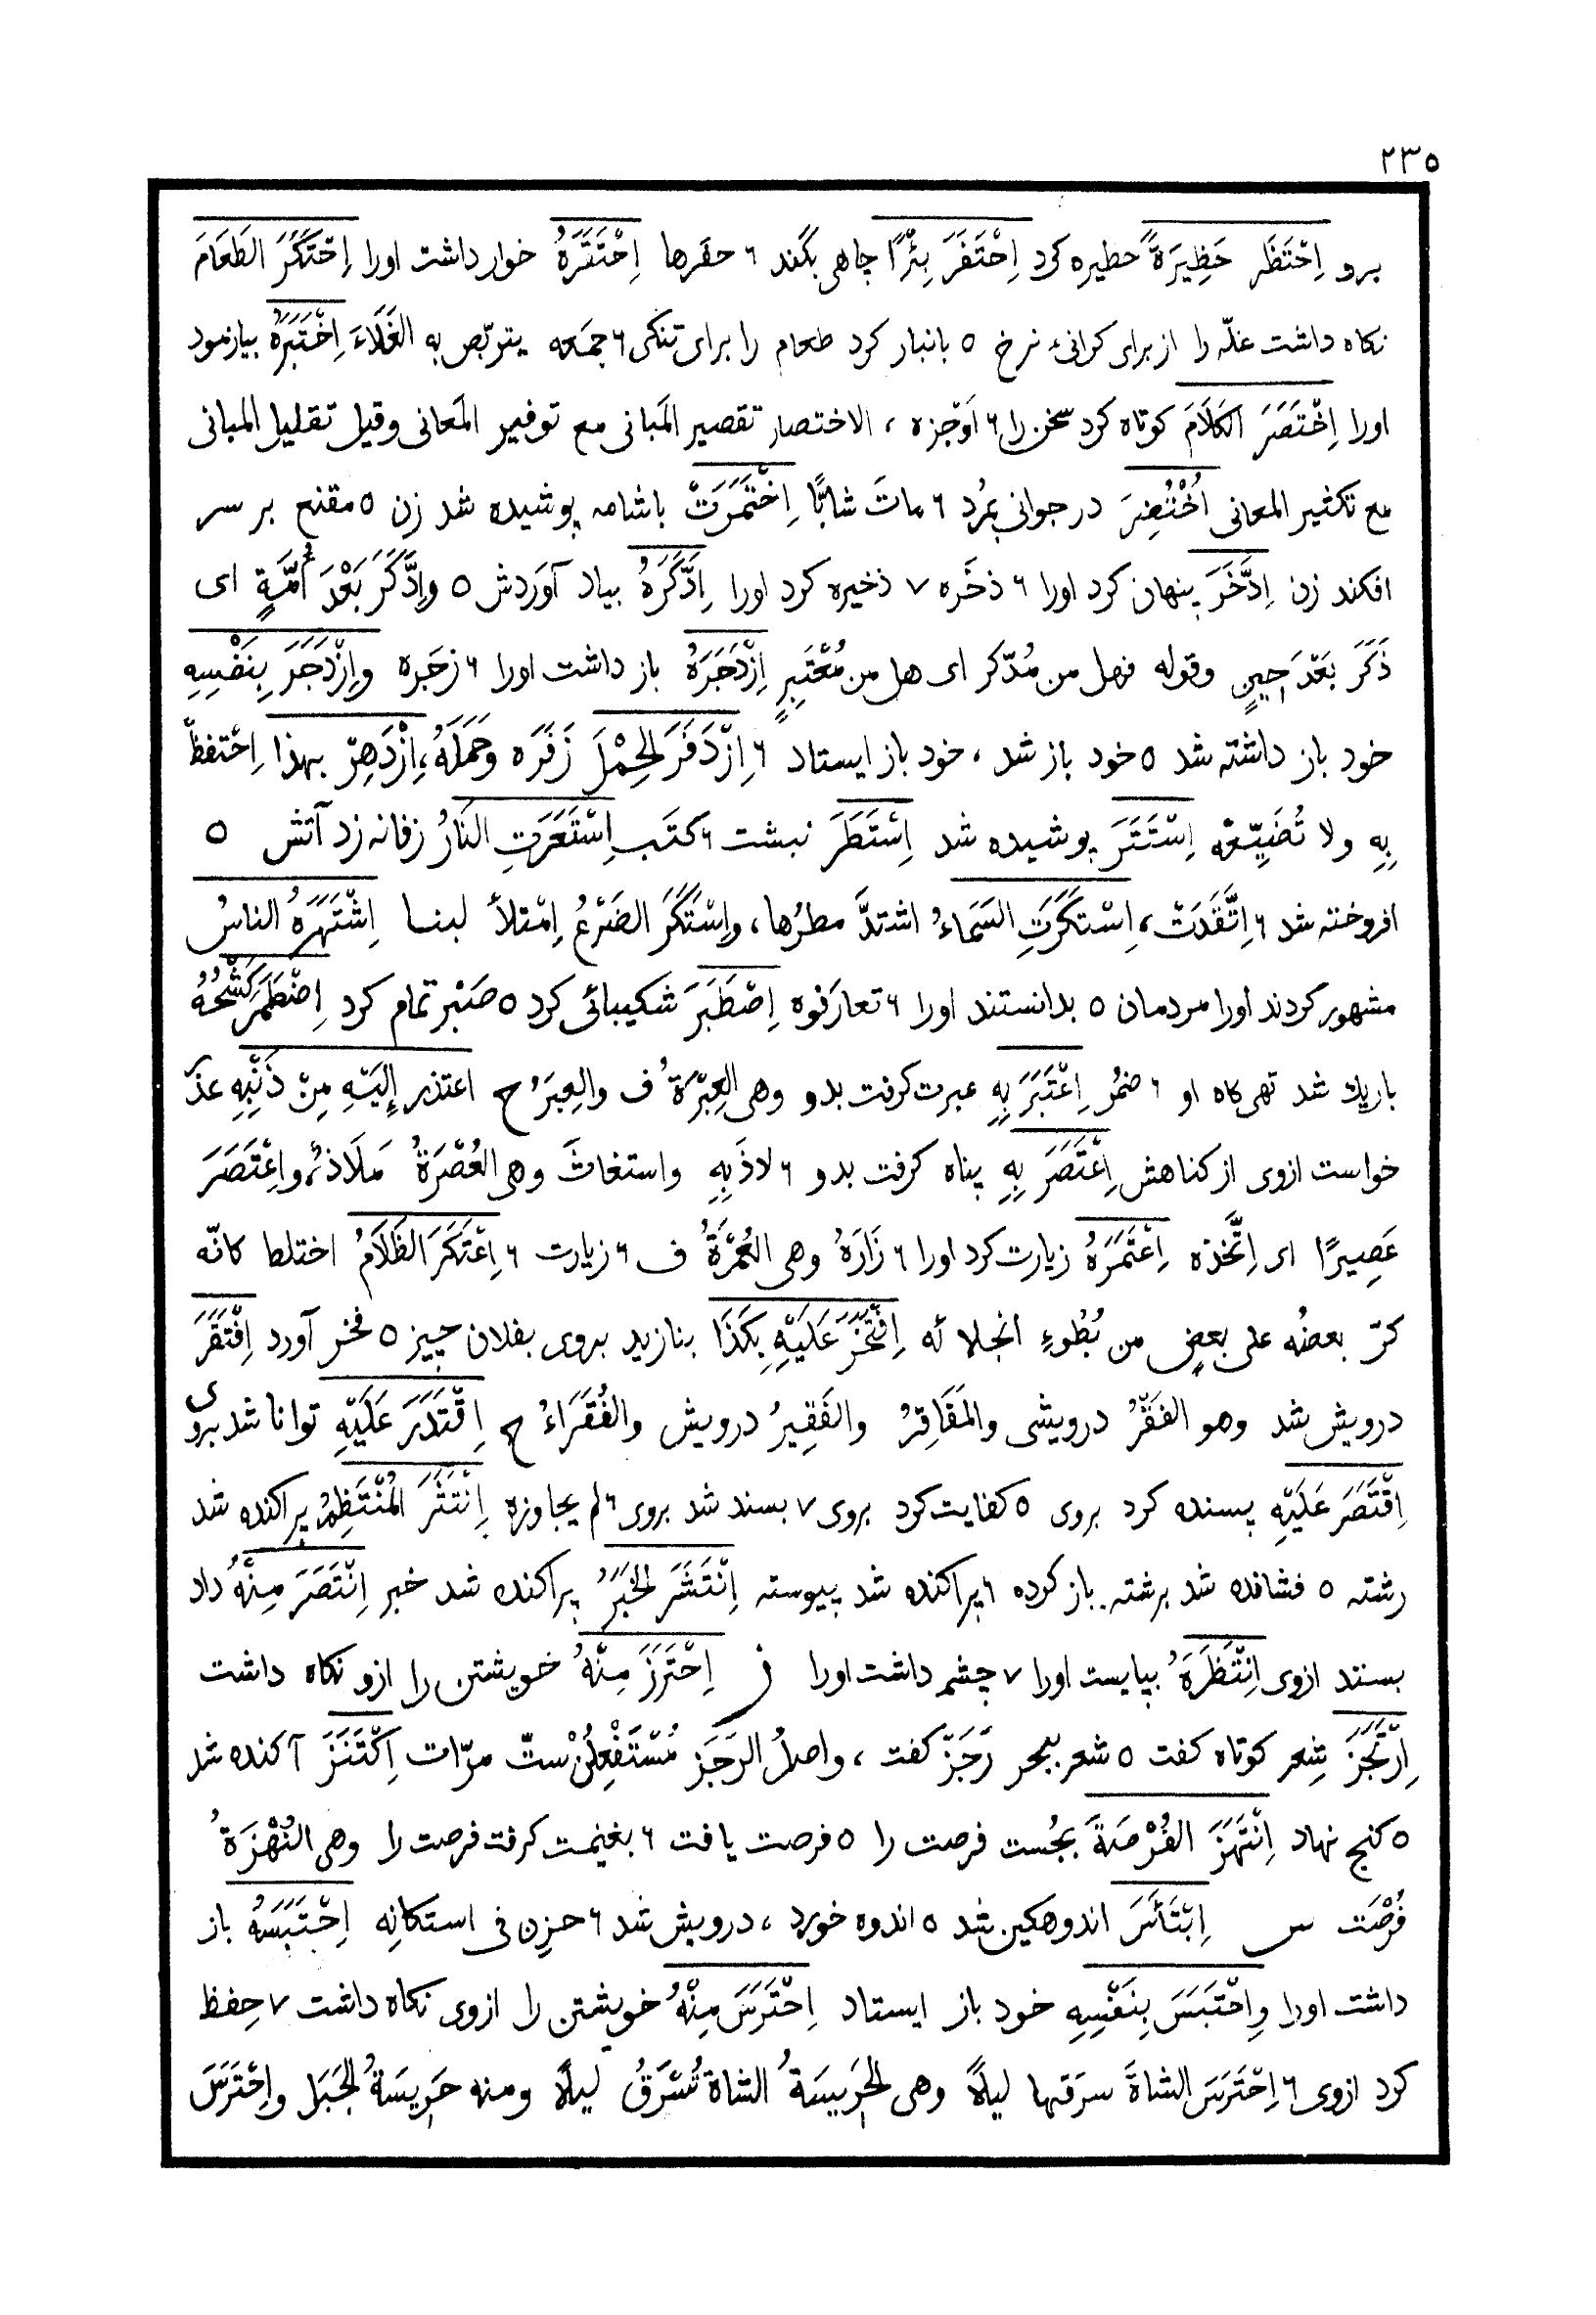 ٢٣٥
برو اِحْتَظَرَ حَظِيرَةً حظيره كرد اِحْتَفَرَ بِئْرًا چاهى بكَند ٦ حفَرها اِحْتَقَرَهُ خوار داشت اورا اِحْتَكَرَ الطَعَامَ
نكاه داشت غلّه را از براى كرانىء نرخ ٥ بانبار كرد طعام را براى تنكى ٦ جمَعه يتربّص به الغَلَاءَ اِخْتَبَرَهُ بيازمود
اورا اِخْتَصَرَ الكَلَامَ كوتاه كرد سخن را ٦ اَوْجزه ، الاختصار تقصير المَبانى مع توفير المَعانى وقيل تقليل المبانى
مع تكثير المعانى اُخْتُضِرَ در جوانى بمُرد ٦ ماتَ شابًّا اِخْتَمَرَتْ باشامه پوشيده شد زن ٥ مقنع بر سر
افكند زن اِدَّخَرَ پنهان كرد اورا ٦ ذخَره ٧ ذخيره كرد اورا اِدَّكَرَهُ بياد آوَردش ٥ واِدَّكَرَ بَعْدَ اُمَّةٍ اى
ذَكَرَ بَعْدَ حِينٍ وقوله فهل من مُدّكر اى هل من مُعْتَبِرٍ اِزْدَجَرَهُ باز داشت اورا ٦ زجَره واِزْدَجَرَ بِنَفْسِهِ
خود باز داشته شد ٥ خود باز شد ، خود باز ايستاد ٦ اِزْدَفَرَ الحِمْلَ زَفَرَه وحَمَلَهُ ، اِزْدَهِرْ بهذا اِحْتفظْ
بِهِ ولا تُضَيِّعْه اِسْتَتَرَ پوشيده شد اِسْتَطَرَ نبشت ٦ كتَب اِسْتَعَرَتِ النَارُ زفانه زد آتش ٥
افروخته شد ٦ اِتَّقَدَتْ ، اِسْتكَرَتِ السَمَاءُ اشتدَّ مطرُها ، واِسْتَكَرَ الضَرْعُ اِمْتلأ لبنا اِشْتَهَرَهُ الناسُ
مشهور كردند اورا مردمان ٥ بدانستند اورا ٦ تعارَفوه اِصْطَبَرَ شكيبائى كرد ٥ صَبْر تمام كرد اِضْطَمَرَ كَشْحُهُ
باريك شد تهى كاه او ٦ ضمُر اِعْتَبَرَ بِهِ عبرت كرفت بدو وهى العِبْرَةُ ف والعِبَرُ ح اعتذر إِلَيْهِ مِنْ ذَنْبِهِ عذر
خواست ازوى از كناهش اِعْتَصَرَ بِهِ پناه كرفت بدو ٦ لاذَ بِهِ واستغاثَ وهى العُصْرَةُ مَلَاذٌ ، واِعْتَصَرَ
عَصِيرًا اى اِتَّخذه اِعْتَمَرَهُ زيارت كرد اورا ٦ زَارَهُ وهى العُمْرَةُ ف ٦ زيارت ٦ اِعْتَكَرَ الظَلَامُ اختلط كانّه
كرّ بعضُه على بعضٍ من بُطُوءِ انجلائه اِفْتَخَرَ عَلَيْهِ بِكَذَا بنازيد بروى بفلان چيز ٥ فخر آورد اِفْتَقَرَ
درويش شد وهو الفَقْرُ درويشى والمَفَاقِرُ والفَقِيرُ درويش والفُقَرَاءُ ح اِقْتَدَرَ عَلَيْهِ توانا شد بروى
اِقْتَصَرَ عَلَيْهِ پسنده كرد بروى ٥ كفايت كرد بروى ٧ بسند شد بروى ٦ لم يجاوزه اِنْتَثَرَ المُنْتَظِمُ پراكنده شد
رشته ٥ فشانده شد برشته باز كرده ٦ پراكنده شد پيوسته اِنْتَشَرَ الخَبَرُ پراكنده شد خبر اِنْتَصَرَ مِنْهُ داد
بستد ازوى اِنْتَظَرَهُ بپايست اورا ٧ چشم داشت اورا ز اِحْتَرَزَ مِنْهُ خويشتن را ازو نكاه داشت
اِرْتَجَزَ شِعر كوتاه كفت ٥ شعر ببحر رَجَزْ كفت ، واصلُ الرَجَز مُسْتَفْعِلُنْ ستّ مرّات اِكْتَنَزَ آكنده شد
٥ كنج نهاد اِنْتَهَزَ الفُرْصَةَ بجُست فرصت را ٥ فرصت يافت ٦ بغنيمت كرفت فرصت را وهى النُهْزَةُ
فُرْصَت س اِبْتَأَسَ اندوهكين شد ٥ اندوه خورد ، درويش شد ٦ حزِن فى استكانِه اِحْتَبَسَهُ باز
داشت اورا واِحْتَبَسَ بِنَفْسِهِ خود باز ايستاد اِحْتَرَسَ مِنْهُ خويشتن را ازوى نكاه داشت ٧ حِفظ
كرد ازوى ٦ اِحْتَرَسَ الشاةَ سرَقها ليلاً وهى الحَرِيسَةُ الشاة تُسْرَقُ ليلاً ومنه حَرِيسَةُ الجَبَل واِحْتَرَسَ